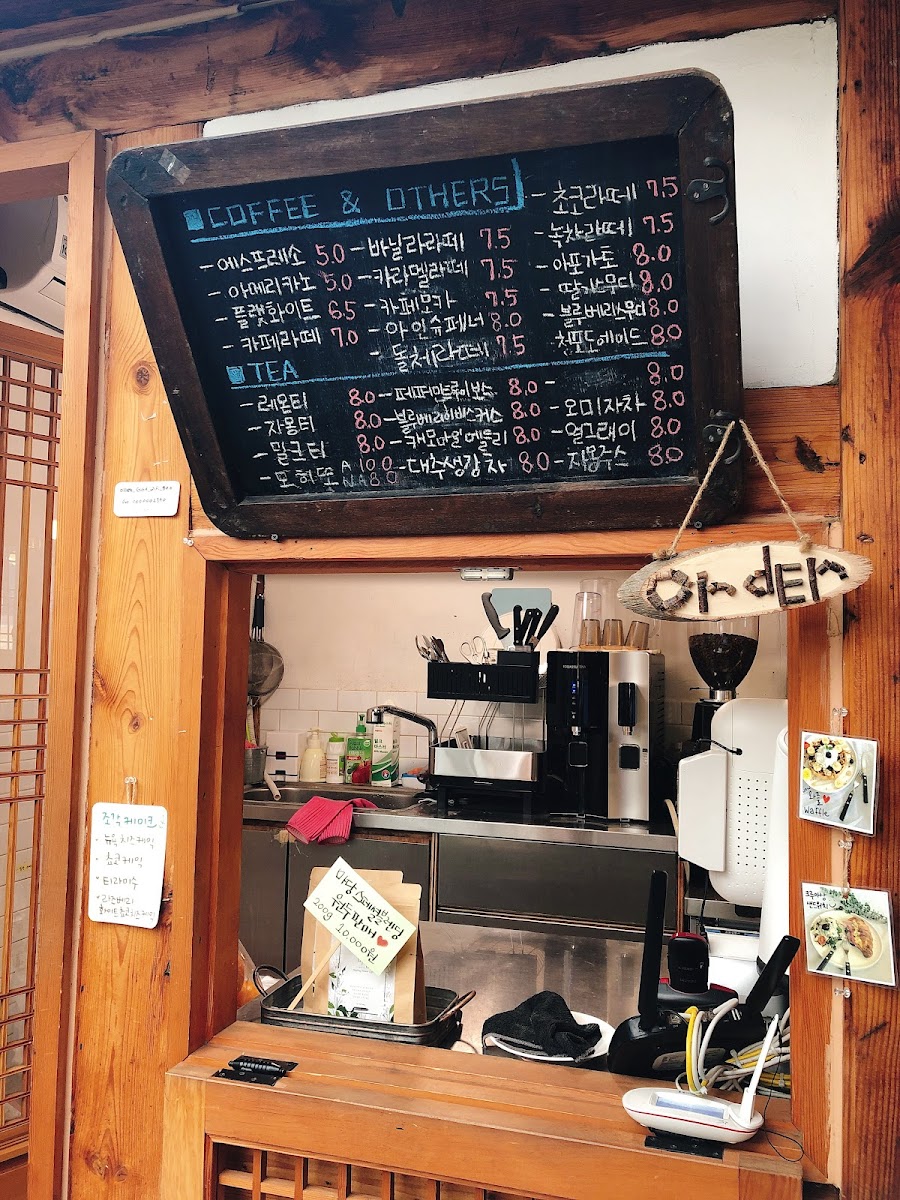 COFFEE & OTHERS
- 에스프레소 5.0
- 아메리카노 5.0
- 플랫화이트 6.5
- 카페라떼 7.0
- 바닐라라떼 7.5
- 카라멜라떼 7.5
- 카페모카 7.5
- 아인슈페너 8.0
- 돌체라떼 7.5
- 초코라떼 7.5
- 녹차라떼 7.5
- 아포가토 8.0
- 딸기스무디 8.0
- 블루베리스무디 8.0
청포도에이드 8.0
TEA
- 레몬티 8.0
- 자몽티 8.0
- 밀크티 8.0
- 모히또 A 10.0
NA 8.0
- 페퍼민트루이보스 8.0
- 블루베리히비스커스 8.0
- 캐모마일 8.0
- 대추생강차 8.0
- 8.0
- 오미자차 8.0
- 얼그레이 8.0
- 자몽주스 8.0
order
조각케이크
· 뉴욕치즈케익
· 초코케익
· 티라미수
· 라즈베리
화이트초코치즈케익
마당 스페셜블렌딩
원두판매 ♥
200g 10.000원
waffle